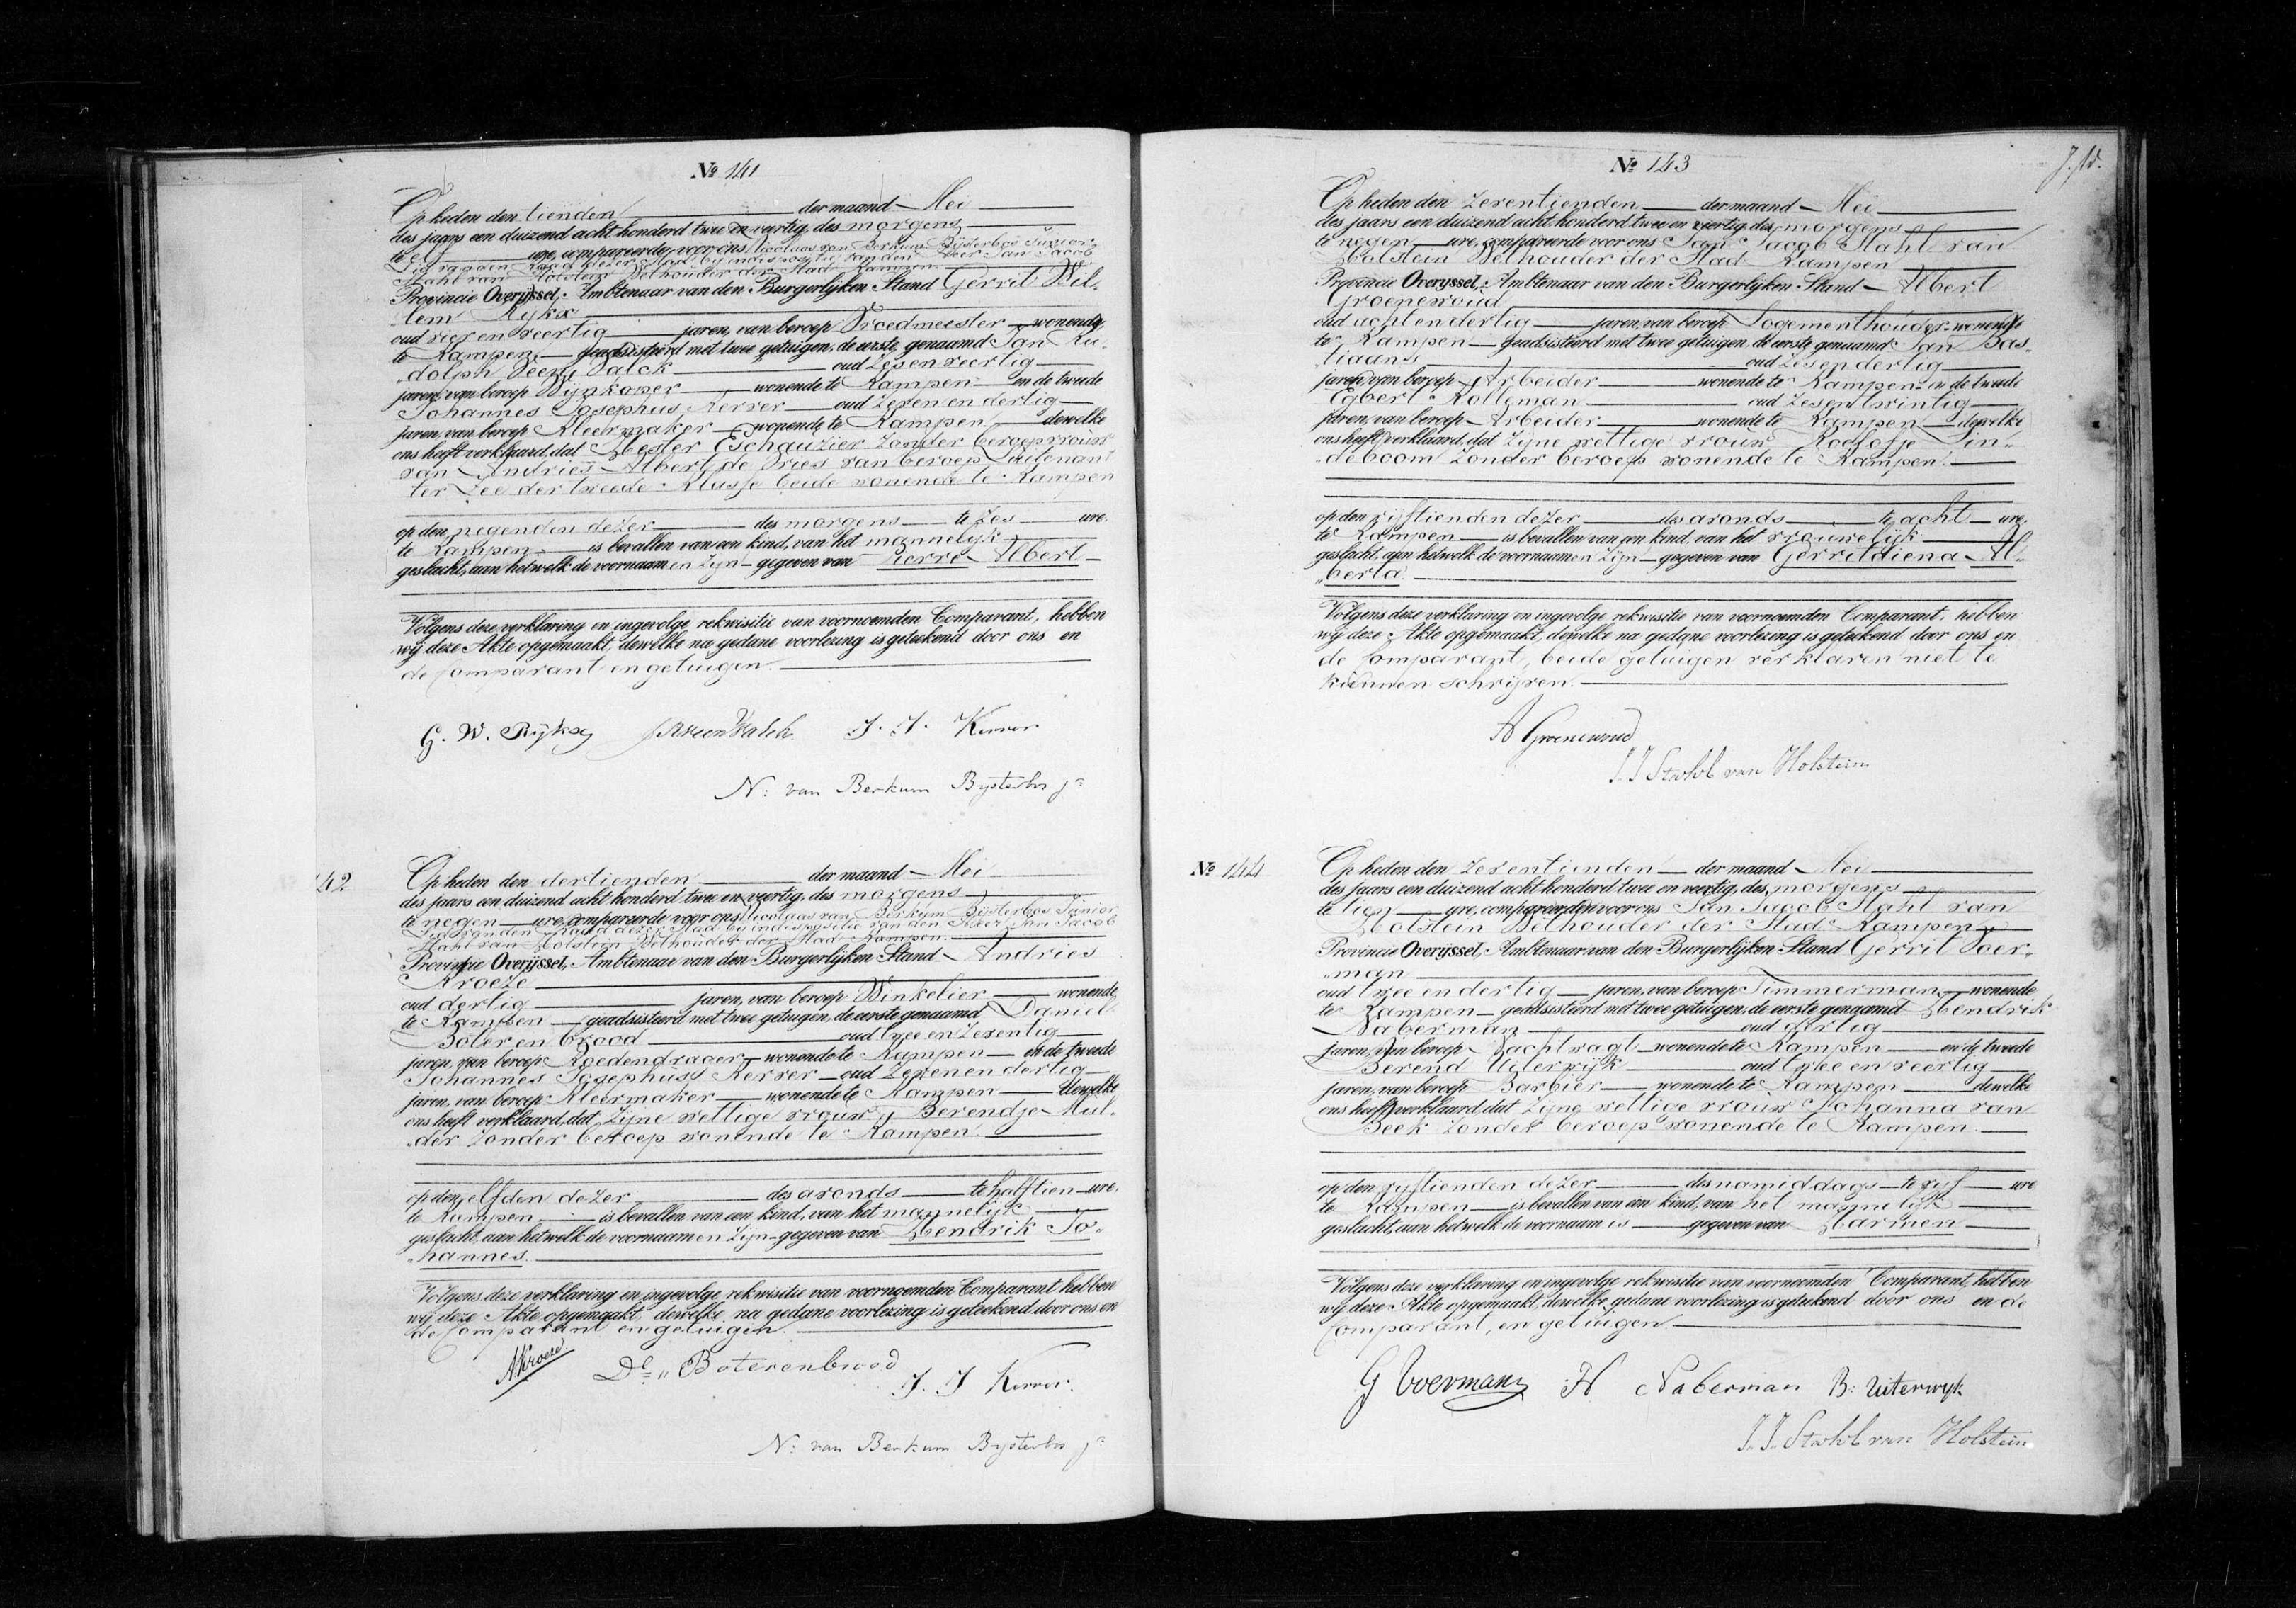 № 141
Op heden den tienden der maand Mei
des jaars een duizend acht honderd twee en veertig, des morgens
te elf ure, compareerde voor ons Nicolaas van Berkum Bijsterbos Junior
Lid van den Raad dezer Stad bij indispositie van den Heer Jan Jacob
Stahl van Holstein Wethouder der Stad Kampen
Provincie Overijssel, Ambtenaar van den Burgerlijken Stand Gerrit Wil„
„lem Rijkx
oud vier en veertig jaren, van beroep Vroedmeester wonende
te Kampen, geadsisteerd met twee getuigen, de eerste genaamd Jan Ru„
„dolph Veen Valck oud Zes en veertig
jaren, van beroep Wijnkoper wonende te Kampen en de tweede
Johannes Josephus Kerver oud Zeven en dertig
jaren, van beroep Kleermaker wonende te Kampen dewelke
ons heeft verklaard, dat Hester Eschauzier Zonder beroep vrouw
van Andries Albert de Vries van beroep Luitenant
ter Zee der tweede Klasse beide wonende te Kampen
op den negenden dezer des morgens te Zes ure.
te Kampen is bevallen van een kind, van het mannelijk
geslacht, aan hetwelk de voornaamen Zijn gegeven van Pierre Albert
Volgens deze verklaring en ingevolge rekwisitie van voornoemden Comparant, hebben
wij deze Akte opgemaakt, dewelke na gedane voorlezing is geteekend door ons en
de Comparant en getuigen.
G. W. Rijkx J. J. Kerver
N: van Berkum Bijsterbos jr
42
Op heden den dertienden der maand Mei
des jaars een duizend acht honderd twee en veertig, des morgens
te negen ure, compareerde voor ons Nicolaas van Berkum Bijsterbos Junior
Lid van den Raad dezer Stad bij indispositie van den Heer Jan Jacob
Stahl van Holstein Wethouder der Stad Kampen.
Provincie Overijssel, Ambtenaar van den Burgerlijken Stand Andries
Kroeze
oud dertig jaren, van beroep Winkelier wonende
te Kampen geadsisteerd met twee getuigen, de eerste genaamd Daniel
Boter en brood oud twee en Zeventig
jaren, van beroep Roedendrager wonende te Kampen en de tweede
Johannes Josephus Kerver oud Zeven en dertig
jaren, van beroep Kleermaker wonende te Kampen dewelke
ons heeft verklaard, dat Zijne wettige vrouw Berendje Mul„
„der Zonder beroep wonende te Kampen.
op den elfden dezer des avonds te half tien ure.
te Kampen is bevallen van een kind, van het mannelijk
geslacht, aan hetwelk de voornaamen Zijn gegeven van Hendrik Jo„
„hannes.
Volgens deze verklaring en ingevolge rekwisitie van voornoemden Comparant hebben
wij deze Akte opgemaakt, dewelke na gedane voorlezing is geteekend door ons en
de Comparant en getuigen.
AKroeze Dl „ Boterenbrood
J. J Kerver.
N: van Berkum Bijsterbos jr
№ 143
Op heden den Zeventienden der maand Mei
des jaars een duizend acht honderd twee en veertig, des morgens
te negen ure, compareerde voor ons Jan Jacob Stahl van
Holstein Wethouder der Stad Kampen
Provincie Overyssel, Ambtenaar van den Burgerlijken Stand Albert
Groenewoud
oud acht en dertig jaren, van beroep Logementhouder wonende
te Kampen geadsisteerd met twee getuigen, de eerste genaamd Jan Bas„
„tiaans oud Zes en dertig
jaren, van beroep Arbeider wonende te Kampen en de tweede
Egbert Kolleman oud Zes en twintig
jaren, van beroep Arbeider wonende te Kampen dewelke
ons heeft verklaard, dat Zijne wettige vrouw Roelofje Lin„
„deboom Zonder beroep wonende te Kampen.
op den vijftienden dezer des avonds te acht ure.
te Kampen is bevallen van een kind, van het vrouwelijk
geslacht, aan hetwelk de voornaamen Zijn gegeven van Gerritdiena Al„
„berta
Volgens deze verklaring en ingevolge rekwisitie van voornoemden Comparant, hebben
wij deze Akte opgemaakt, dewelke na gedane voorlezing is geteekend door ons en
de Comparant, beide getuigen verklaren niet te
kunnen schrijven.
A Groenewoud
J J Stahl van Holstein
№ 144
Op heden den Zeventienden der maand Mei
des jaars een duizend acht honderd twee en veertig, des morgens
te tien ure, compareerde voor ons Jan Jacob Stahl van
Holstein Wethouder der Stad Kampen
Provincie Overijssel, Ambtenaar van den Burgerlijken Stand Gerrit Voer„
„man
oud twee en dertig jaren, van beroep Timmerman wonende
te Kampen geadsisteerd met twee getuigen, de eerste genaamd Hendrik
Naberman oud dertig
jaren, van beroep Nachtwagt wonende te Kampen en de tweede
Berend Uiterwijk oud twee en veertig
jaren, van beroep Barbier wonende te Kampen dewelke
ons heeft verklaard, dat Zijne wettige vrouw Johanna van
Beek Zonder beroep wonende te Kampen.
op den vijftienden dezer des namiddags te vijf ure
te Kampen is bevallen van een kind, van het mannelijk
geslacht, aan hetwelk de voornaam is gegeven van Harmen
Volgens deze verklaring en ingevolge rekwisitie van voornoemden Comparant, hebben
wij deze Akte opgemaakt, dewelke gedane voorlezing is geteekend door ons en de
Comparant, en getuigen.
G Voerman H Naberman B: Uiterwyk
J. J. Stahl van Holstein